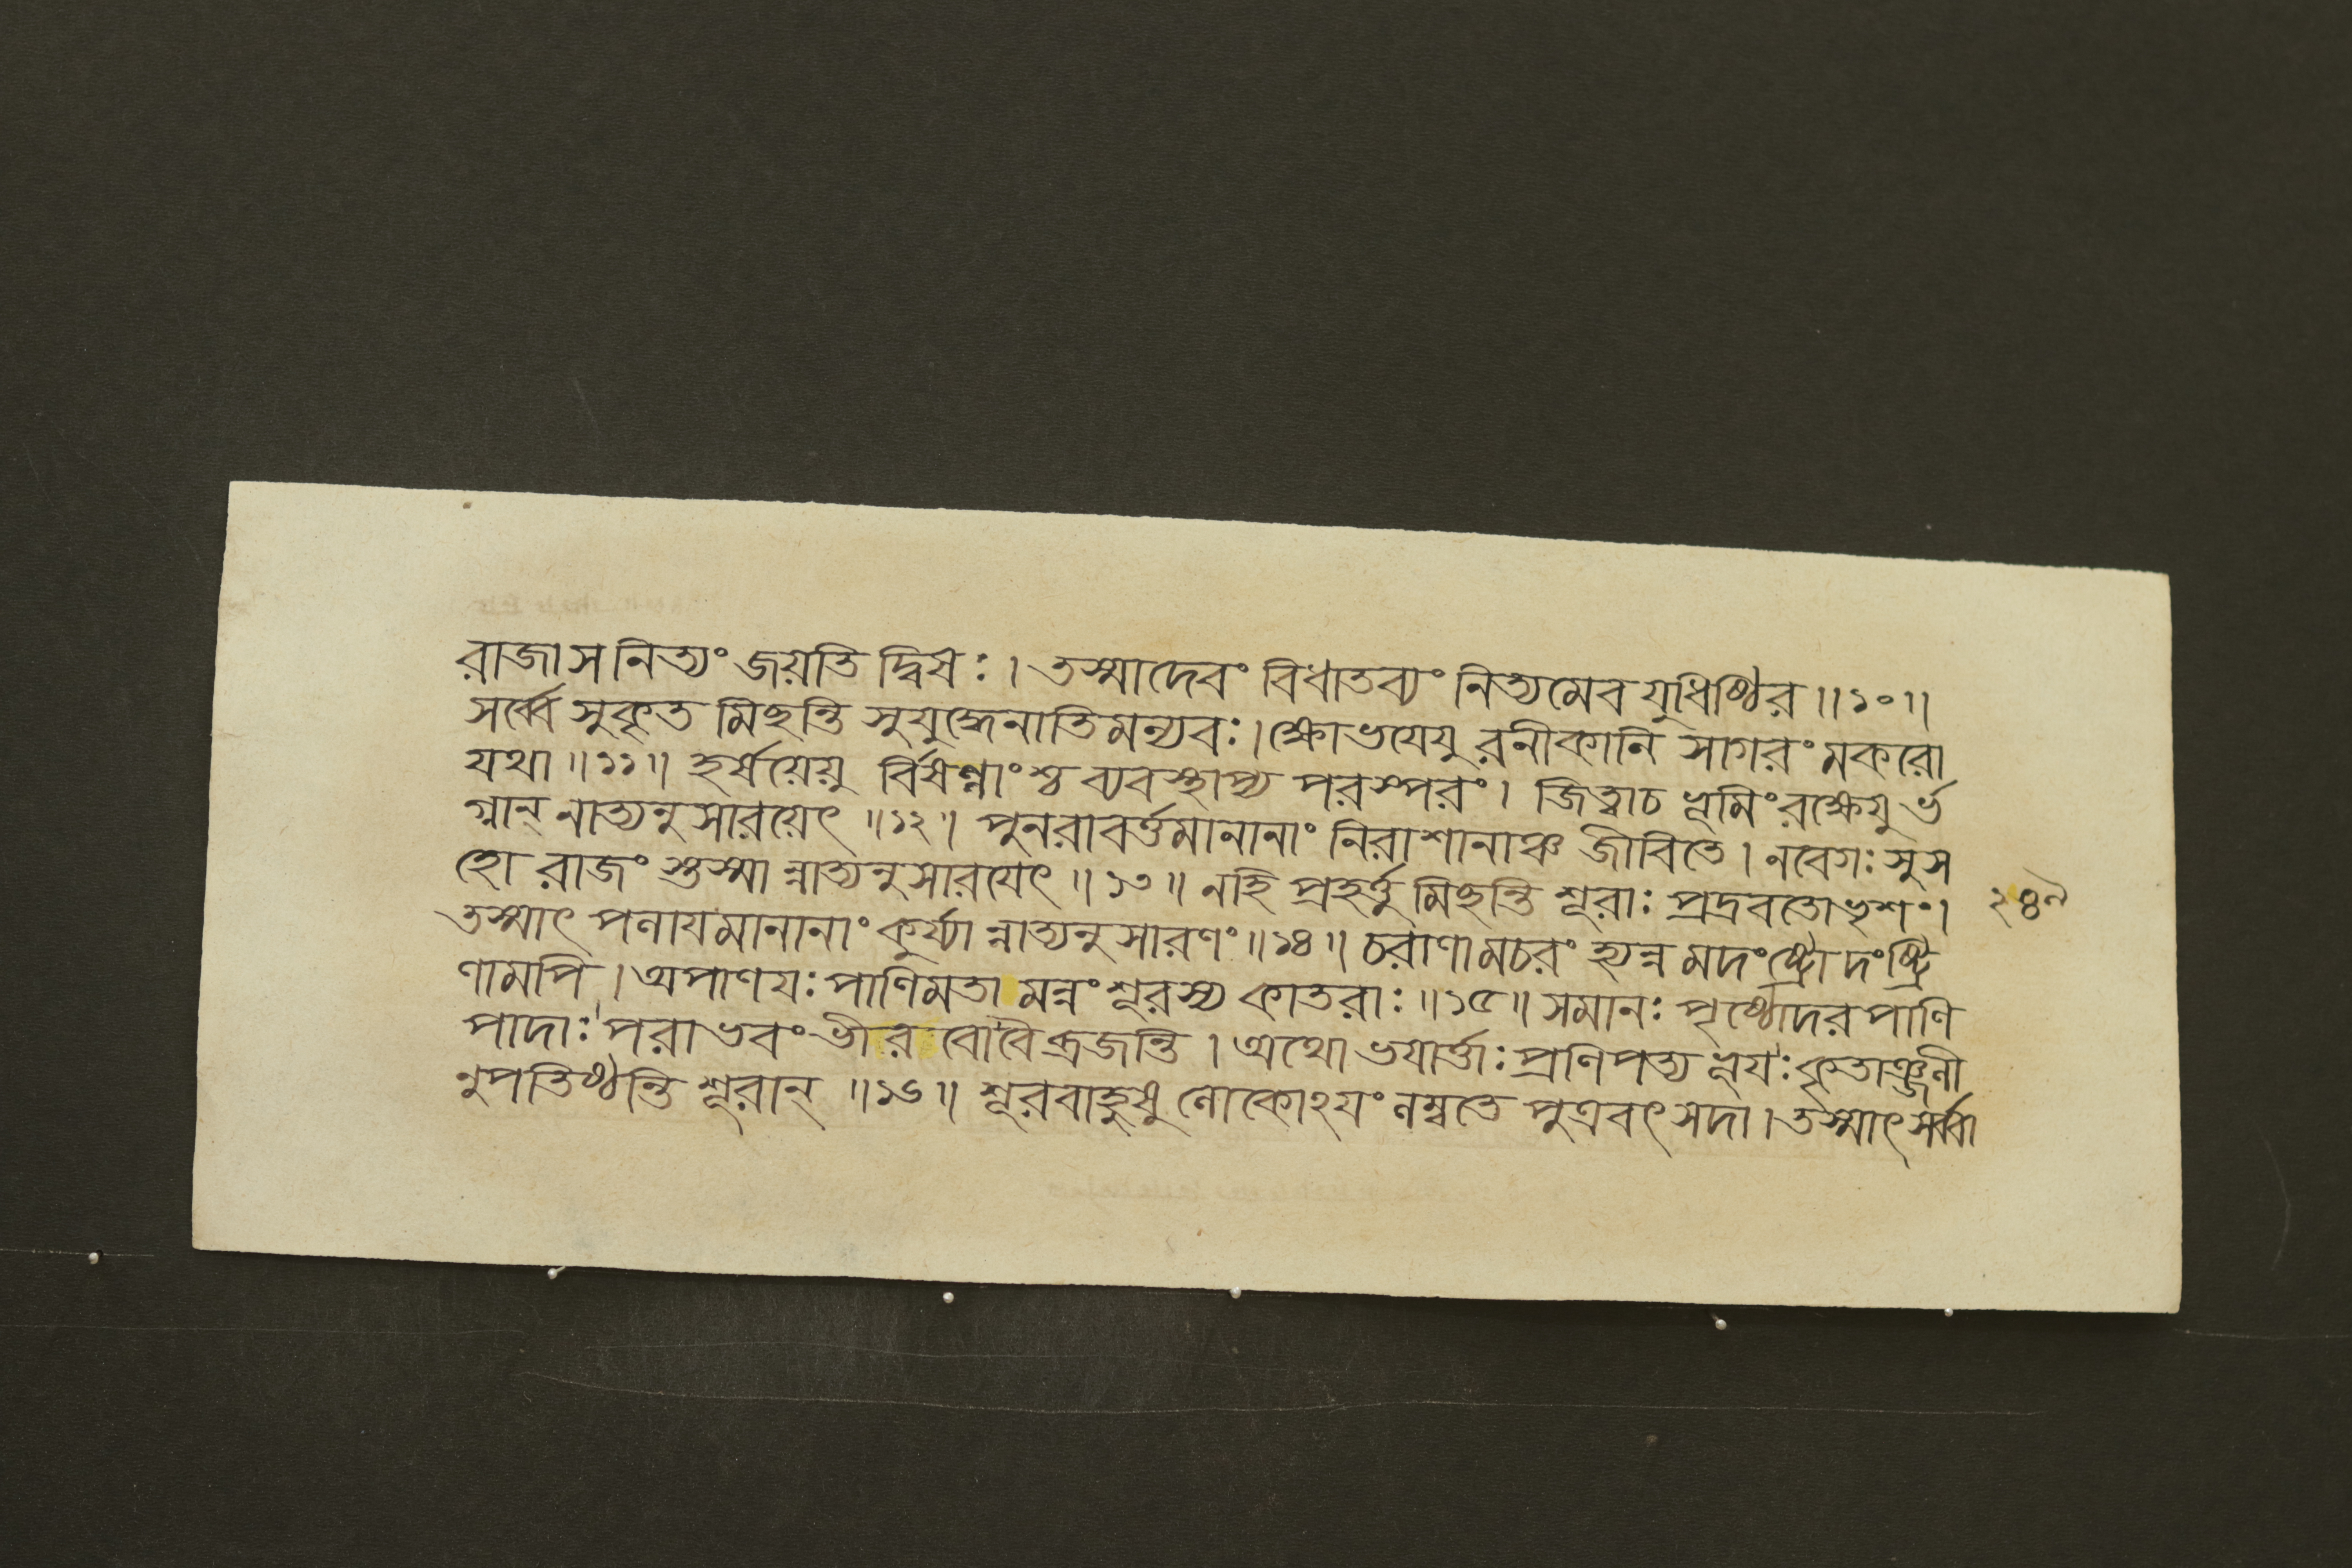 রাজা স নিত্যং জয়তি দ্বিষঃ । তস্মাদেবং বিধাতব্যং নিত্যমেব যুধিষ্ঠির ॥১০॥
সর্ব্বে সুকৃত মিছন্তি সুযুদ্ধেনাতিমন্যবঃ । ক্ষোভযেযু রনীকানি সাগরং মকরো
যথা ॥১১॥ হর্ষয়েয়ু র্বিষণ্ণাংশ্চ ব্যবস্থাপ্য পরস্পরং । জিত্বাচ ভূমিং রক্ষেযু র্ভ
গ্নান্ নাত্যনুসারয়েৎ ॥১২॥ পুনরাবর্ত্তমানানাং নিরাশানাঞ্চ জীবিতে । নবেগঃ সুস
হো রাজং স্তস্মা ন্নাত্যনুসারযেৎ ॥১৩॥ নহি প্রহর্ত্তু মিছন্তি শূরাঃ প্রদ্রবতোভৃশং ।
তস্মাৎ পলাযমানানাং কুর্য্যা ন্নাত্যনুসারণং ॥১৪॥ চরাণামচরং হ্যন্ন মদংষ্ট্রো দংষ্ট্রি
ণামপি । অপাণযঃ পাণিমতা মন্নং শূরস্য কাতরাঃ ॥১৫॥ সমানঃ পৃষ্ঠোদর পাণি
পাদাঃ পরাভবং ভীরবোবৈ ব্রজন্তি । অথো ভযার্ত্তাঃ প্রণিপত্য ভূযঃ কৃতাঞ্জলী
নুপতিষ্ঠন্তি শূরান্ ॥১৬॥ শূরবাহুষু লোকোঽযং লম্বতে পুত্রবৎ সদা । তস্মাৎ সর্ব্বা